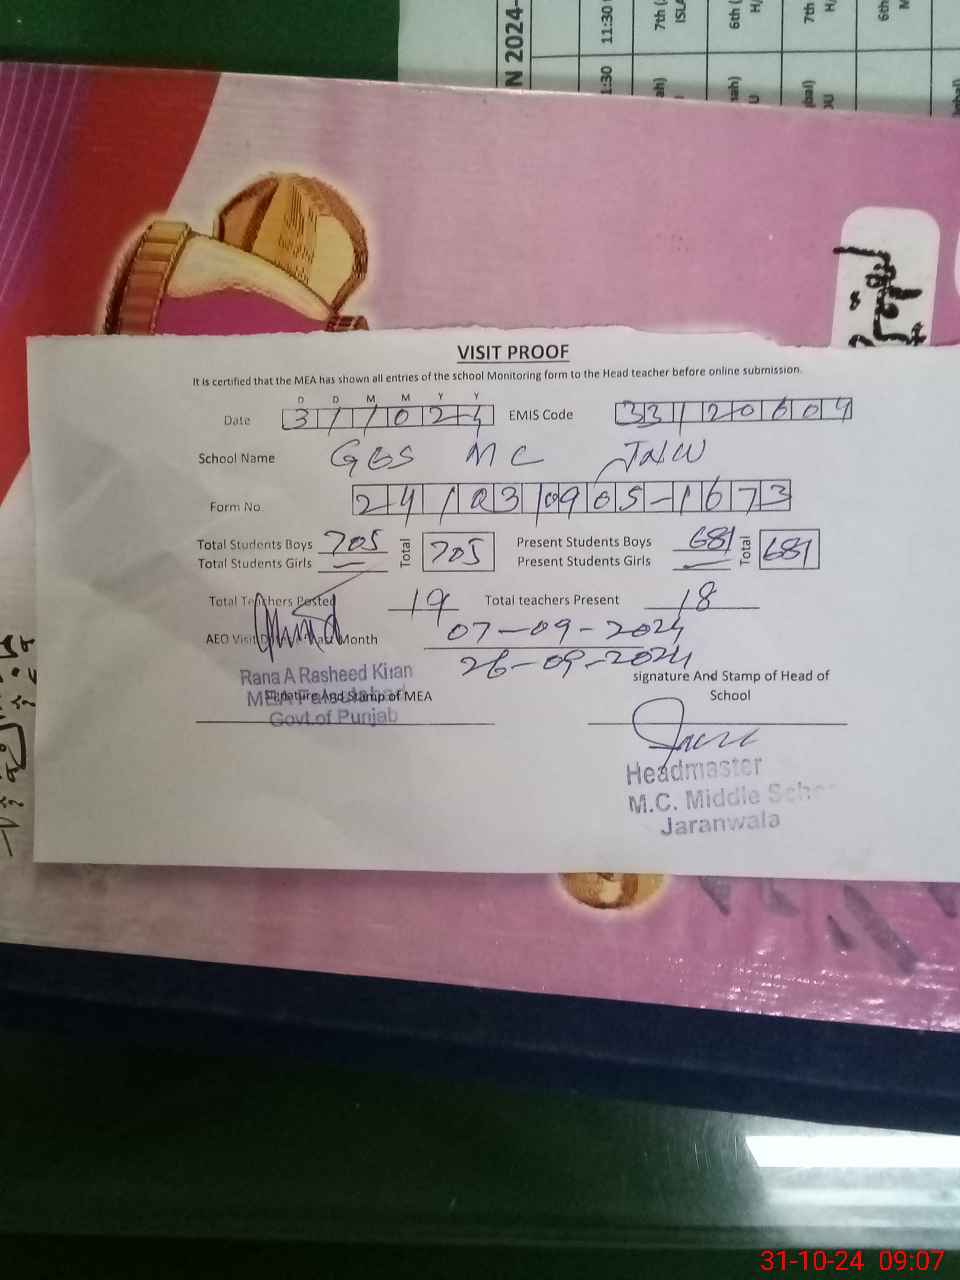 N 2024-
11:30
7th (
ISLA
6th (
H/
7th
H/
6th
M
1:30
VISIT PROOF
It is certified that the MEA has shown all entries of the school Monitoring form to the Head teacher before online submission.
D D M M Y Y
Date 31 10 24 EMIS Code 33120604
School Name GES MC JNW
Form No. 24/03 0905-1673
Total Students Boys 705 Total 705 Present Students Boys 681 Total 681
Total Students Girls — Present Students Girls —
Total Teachers Posted 19 Total teachers Present 18
AEO Visit Month 07-09-2024
26-09-2024
Rana A Rasheed Khan
MEA Faisalabad
Signature And Stamp of MEA
Govt.of Punjab
signature And Stamp of Head of
School
Headmaster
M.C. Middle Scho
Jaranwala
31-10-24 09:07